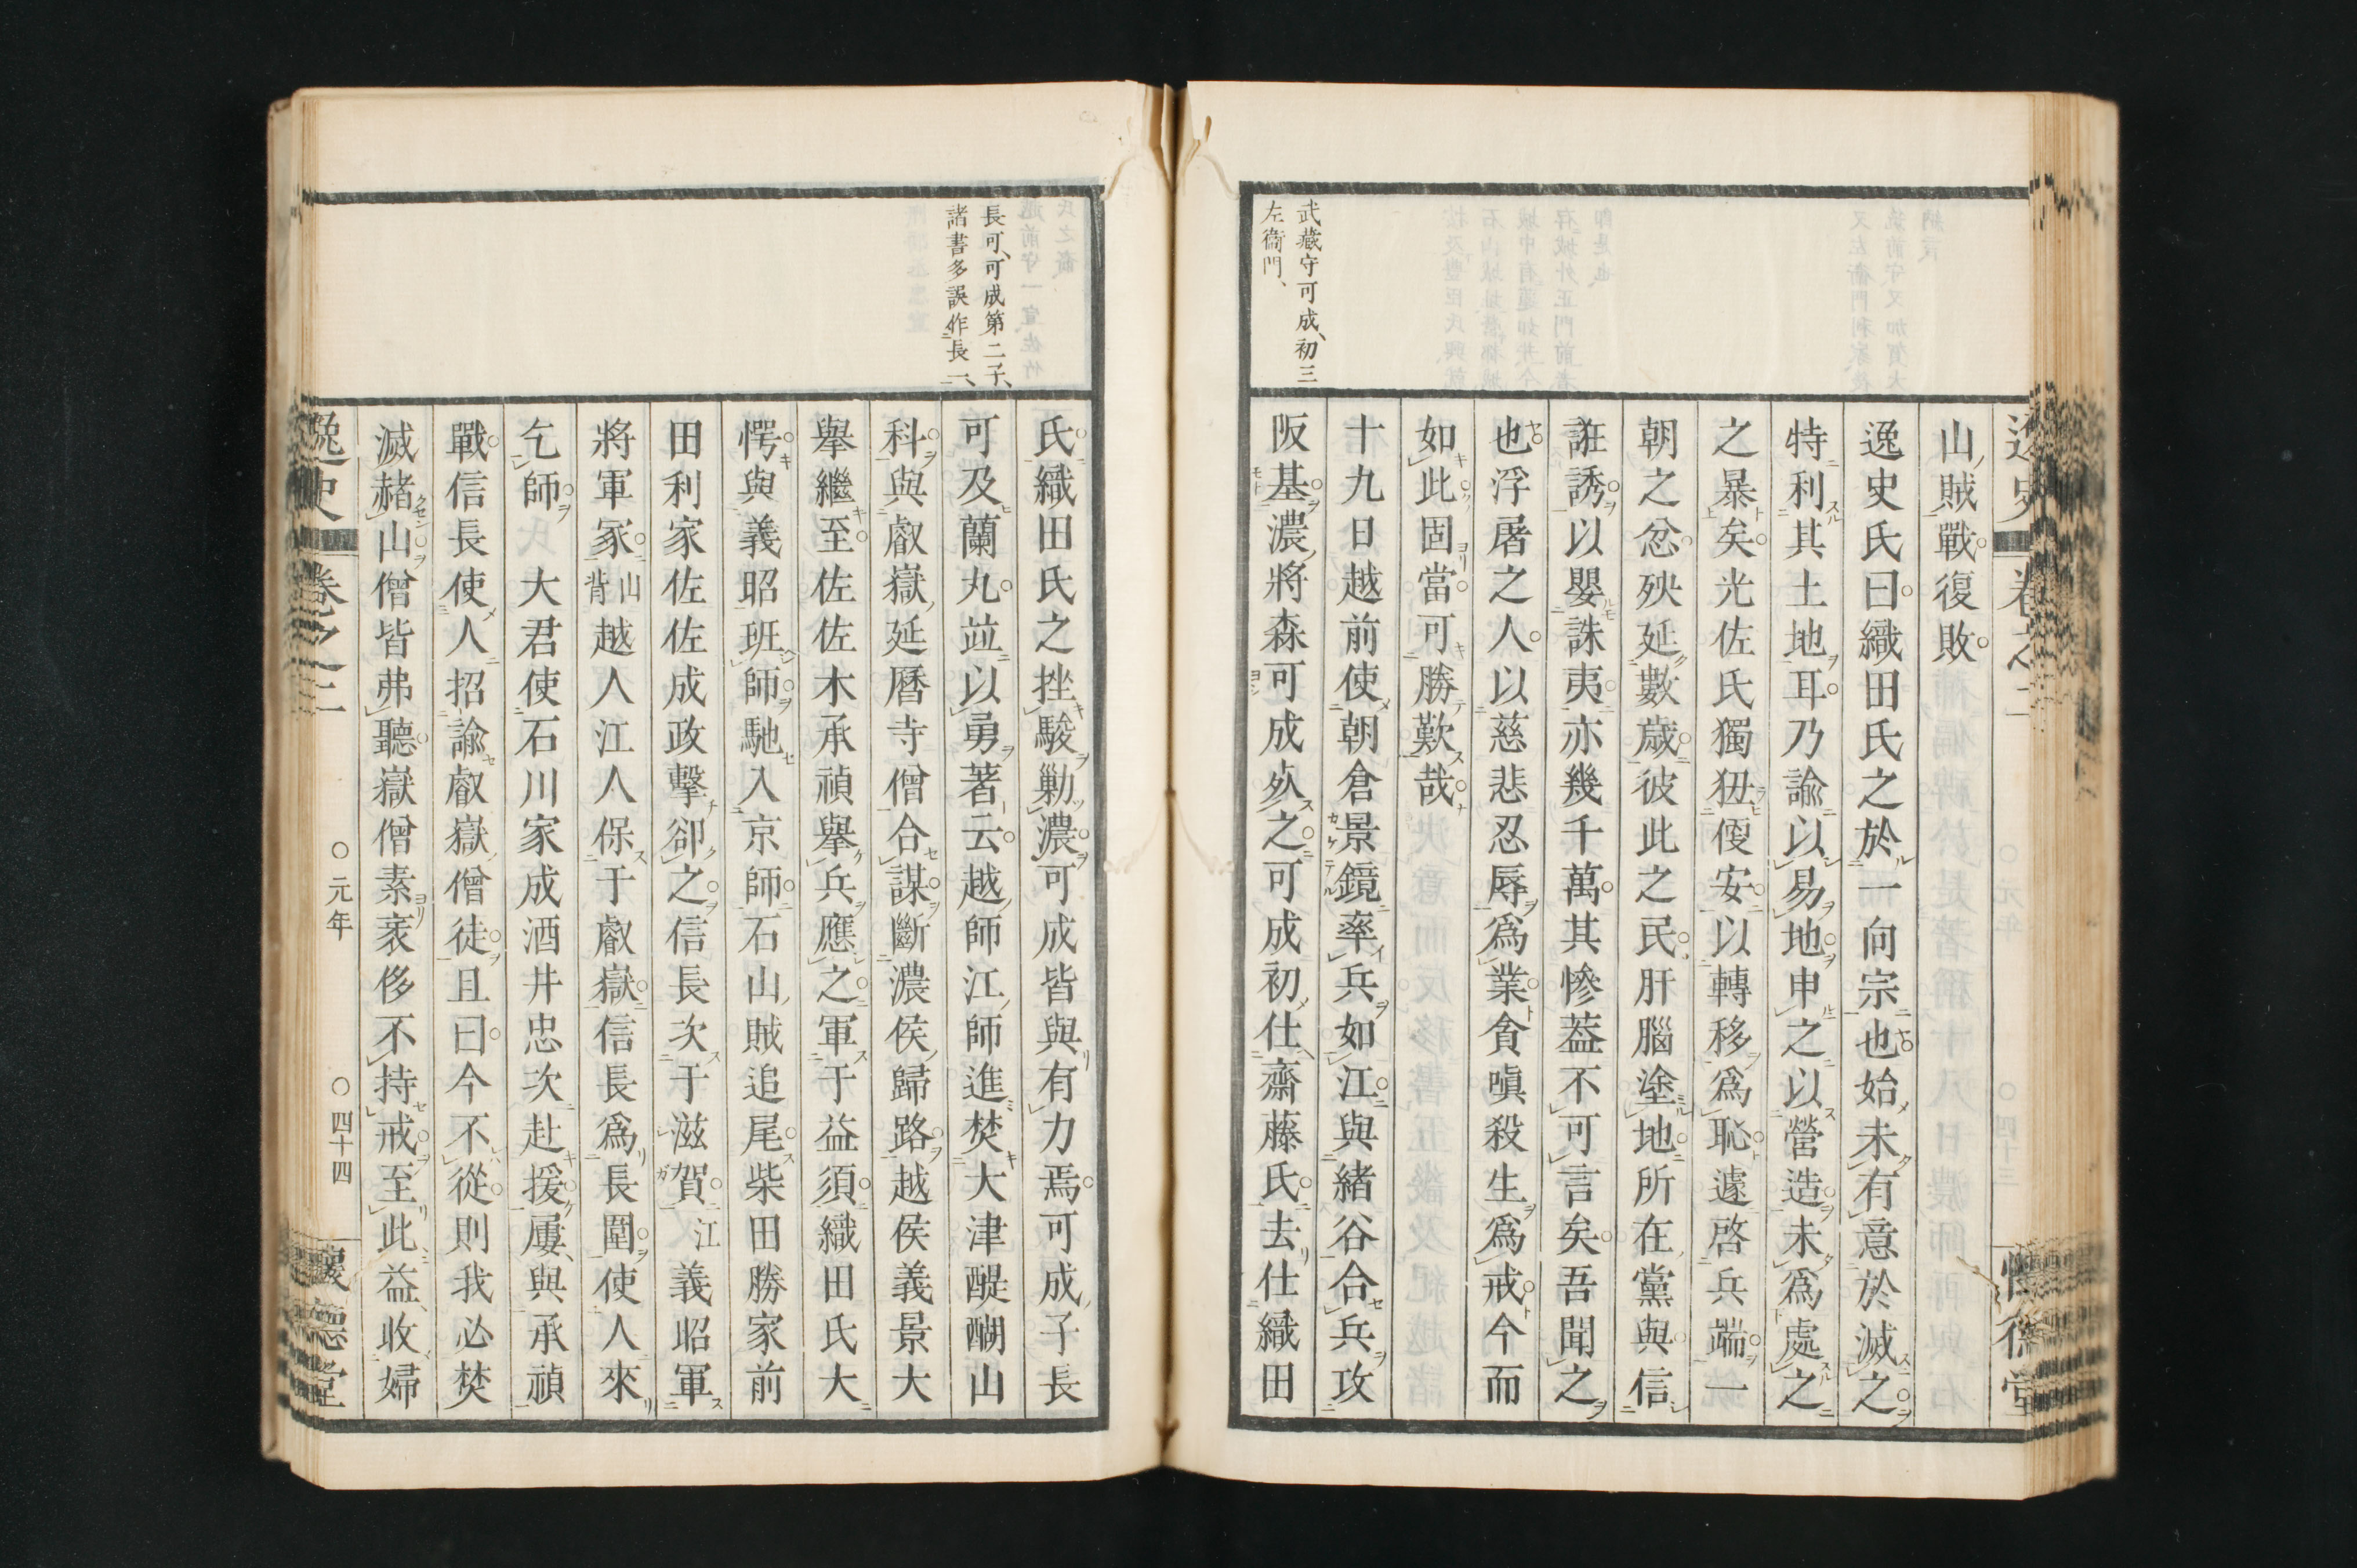 武藏守可成、初三
左衞門、
山賊戰復敗
逸史氏曰織田氏之於一向宗也始未有意於滅之
特利其土地耳乃諭以易地申之以營造未爲處之
之暴矣光佐氏獨狃偄安以轉移爲恥遽啓兵端一
朝之忿殃延數歲彼此之民肝腦塗地所在黨與信
誑誘以嬰誅夷亦幾千萬其慘葢不可言矣吾聞之
也浮屠之人以慈悲忍辱爲業貪嗔殺生爲戒今而
如此固當可勝歎哉
十九日越前使朝倉景鏡率兵如江與緒谷合兵攻
阪基濃將森可成死之可成初仕齋藤氏去仕織田
長可、可成第二子、
諸書多誤作長一、
氏織田氏之挫駿勦濃可成皆與有力焉可成子長
可及蘭丸竝以勇著云越師江師進焚大津醍醐山
科與叡嶽延曆寺僧合謀斷濃侯歸路越侯義景大
擧繼至佐佐木承禎擧兵應之軍于益須織田氏大
愕與義昭班師馳入京師石山賊追尾柴田勝家前
田利家佐佐成政擊卻之信長次于滋賀江義昭軍
將軍冢山背越人江人保于叡嶽信長爲長圍使人來
乞師大君使石川家成酒井忠次赴援屢與承禎
戰信長使人招諭叡嶽僧徒且曰今不從則我必焚
滅赭山僧皆弗聽嶽僧素袤侈不持戒至此益收婦
逸史 卷之二 ○元年 ○四十四 懷德堂